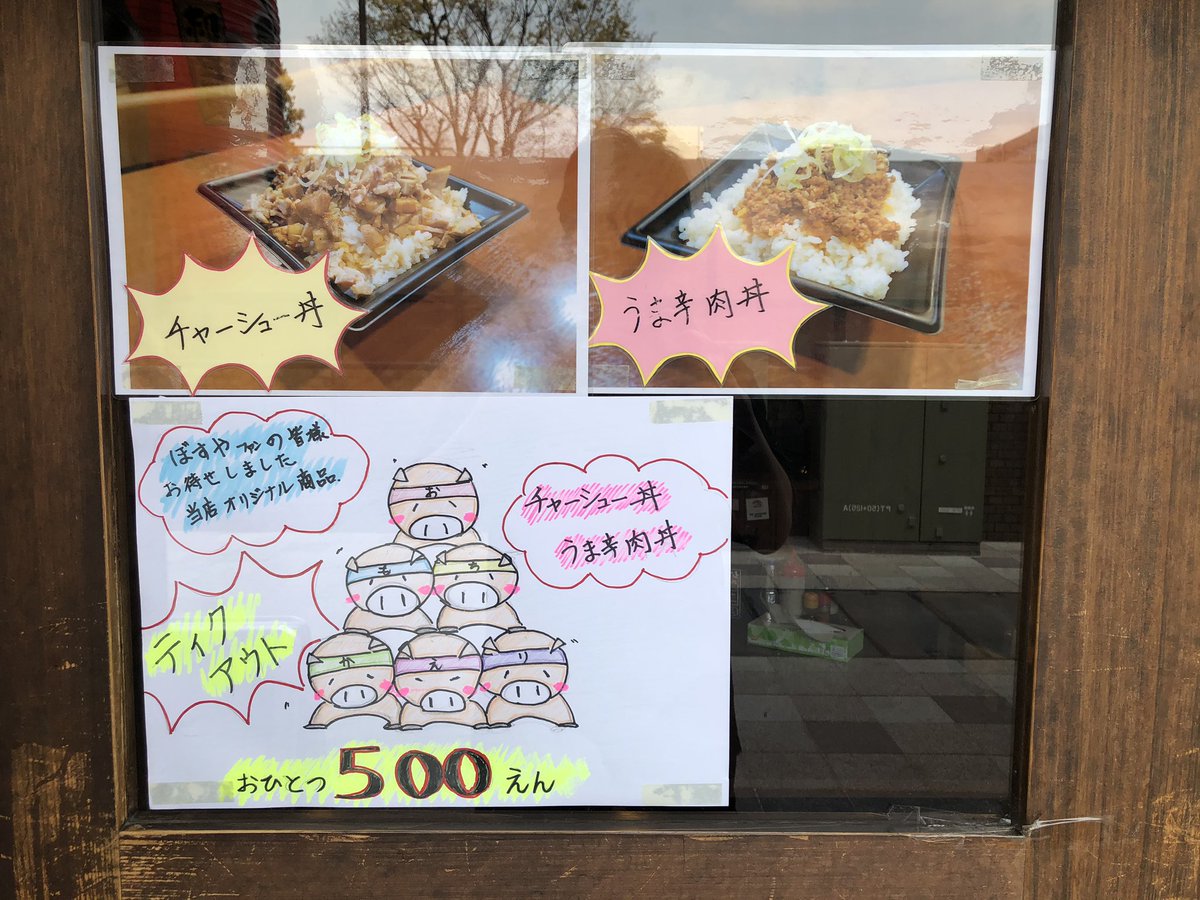 チャーシュー丼
うま辛肉丼
ぼすやファンの皆様
お待せしました
当店オリジナル商品.
お
も
ち
か
え
り
チャーシュー丼
うま辛肉丼
ティク
アウト
おひとつ500えん
PT(50+125)A